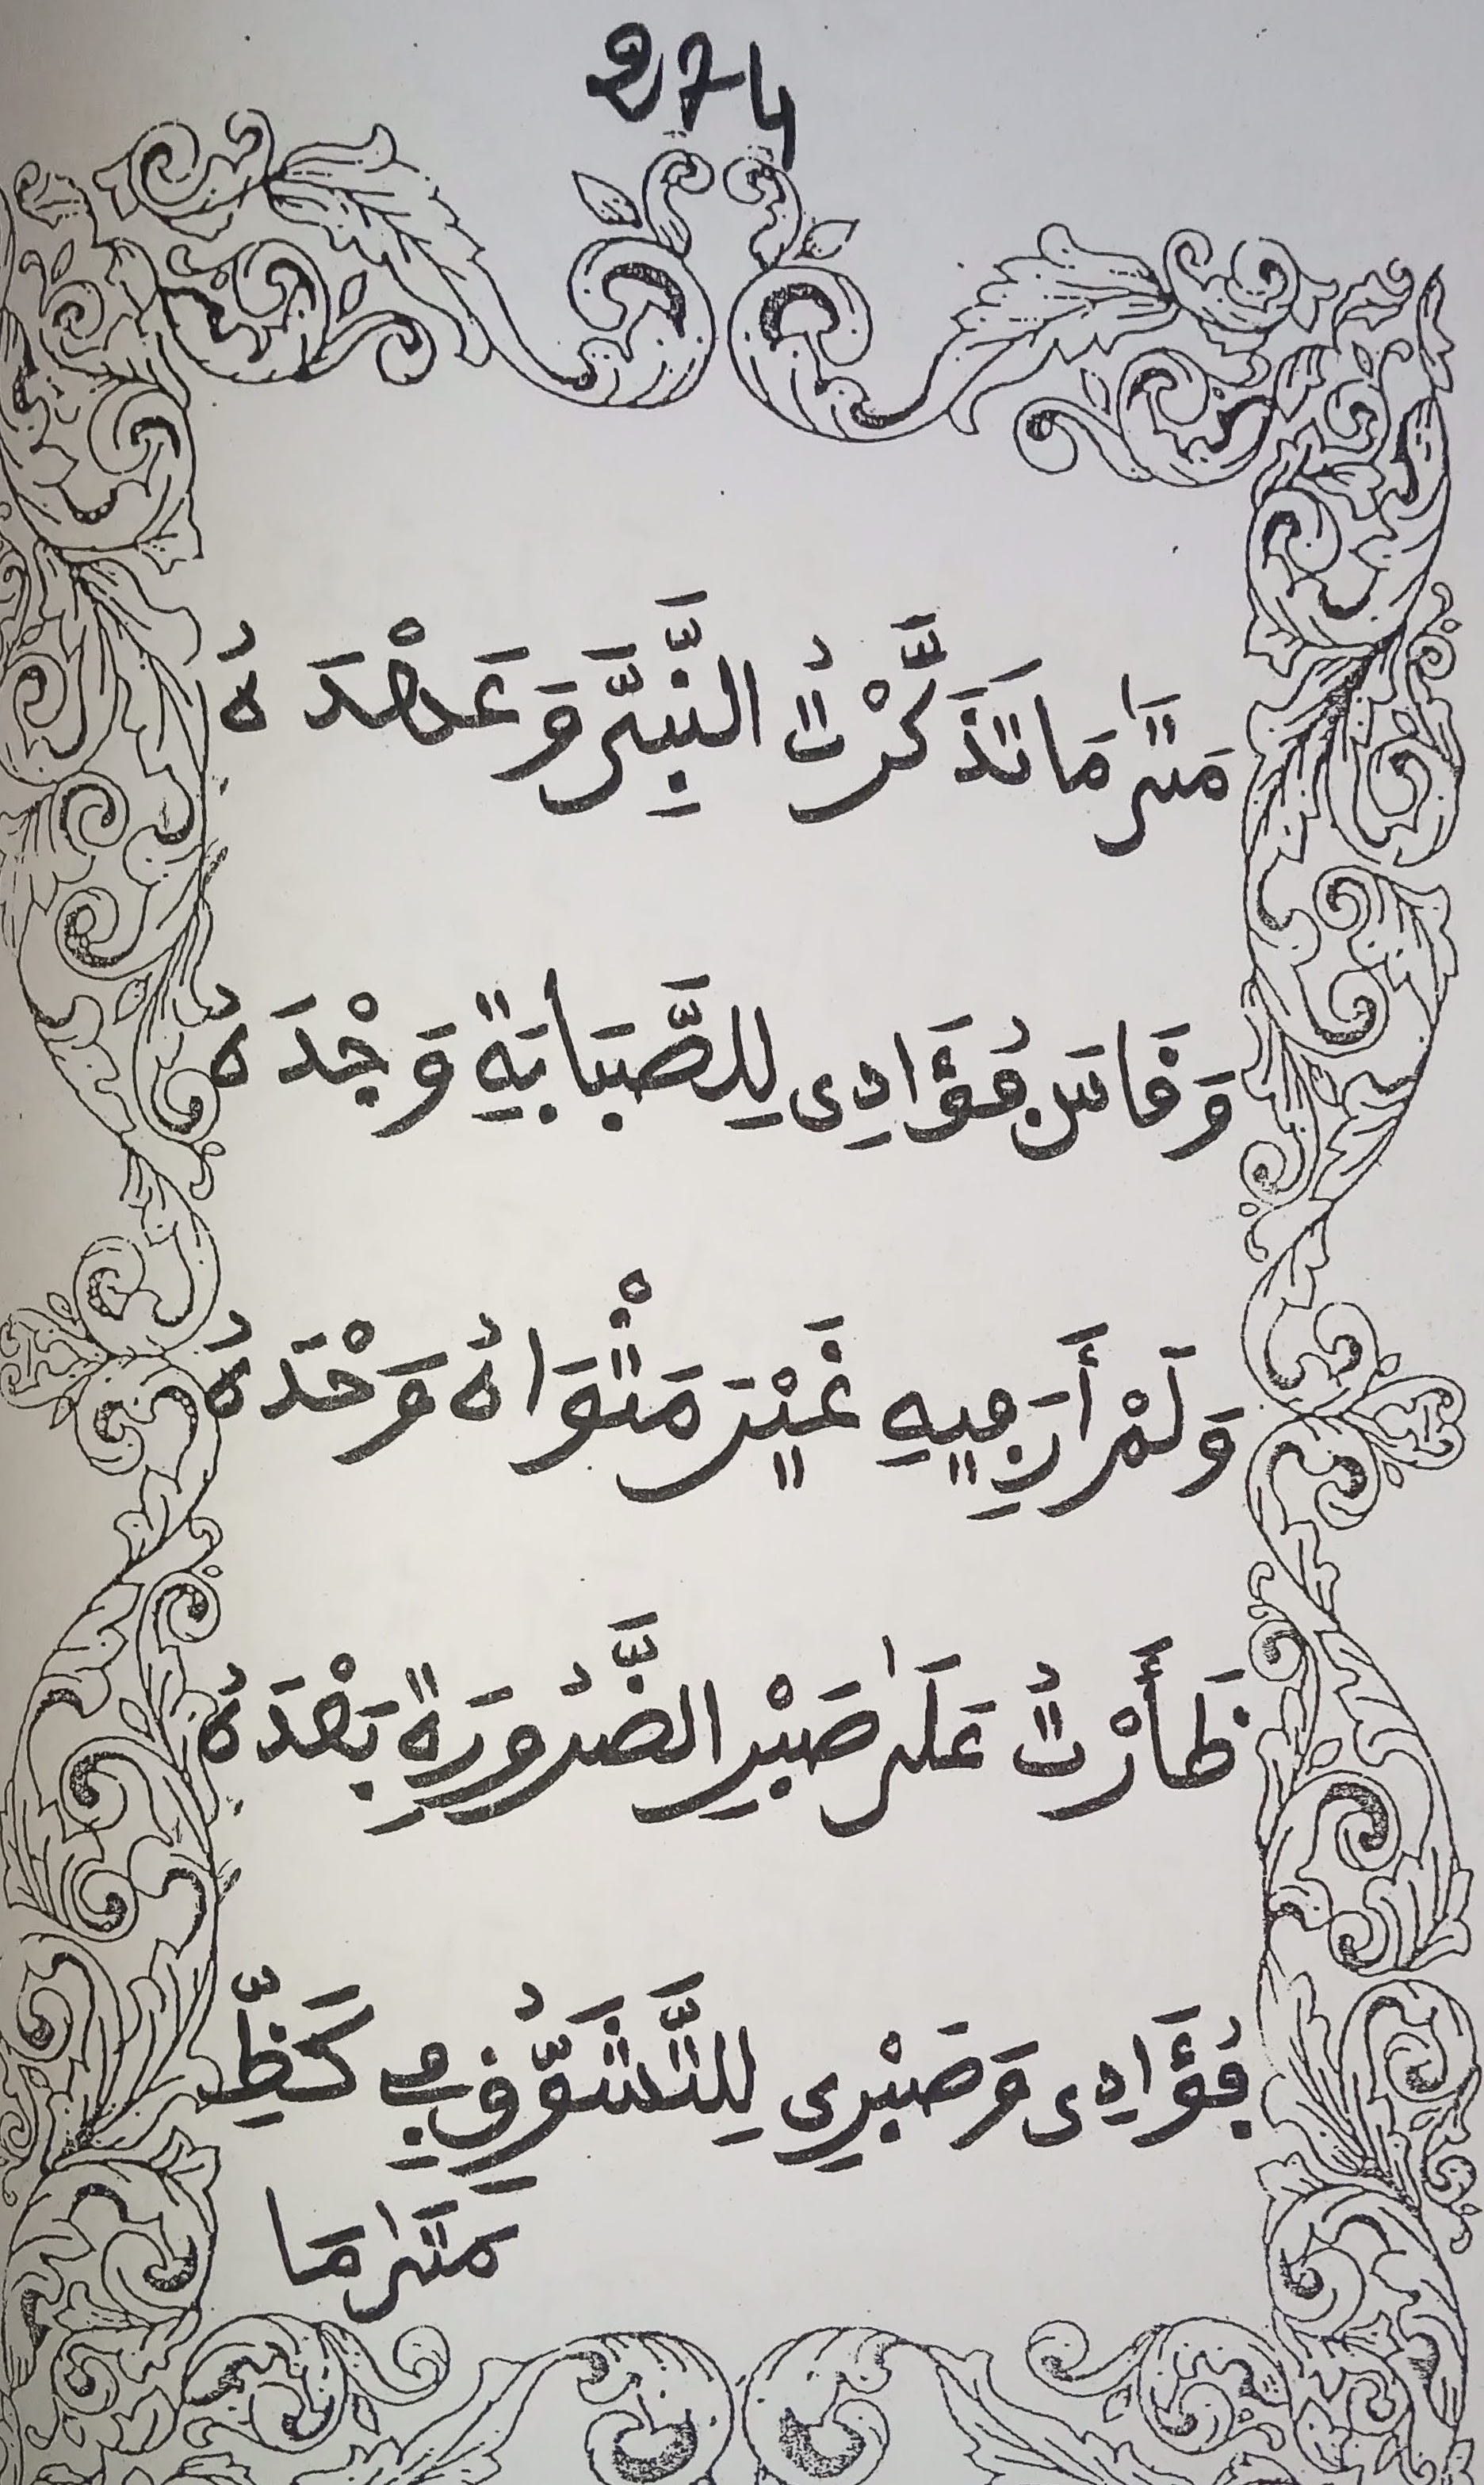 274
مَتَىٰ مَا تَذَكَّرْتُ النَّبِيَّ وَعَهْدَهُ
وَقَاسَ فُؤَادِي لِلصَّبَابَةِ وَجْدَهُ
وَلَمْ أَرَ فِيهِ غَيْرَ مَثْوَاهُ وَحْدَهُ
ظَأَرْتُ عَلَىٰ صَبْرِ الضَّرُورَةِ بَعْدَهُ
فُؤَادِي وَصَبْرِي لِلتَّشَوُّقِ فِي كَظِّ
مَتَىٰ مَا